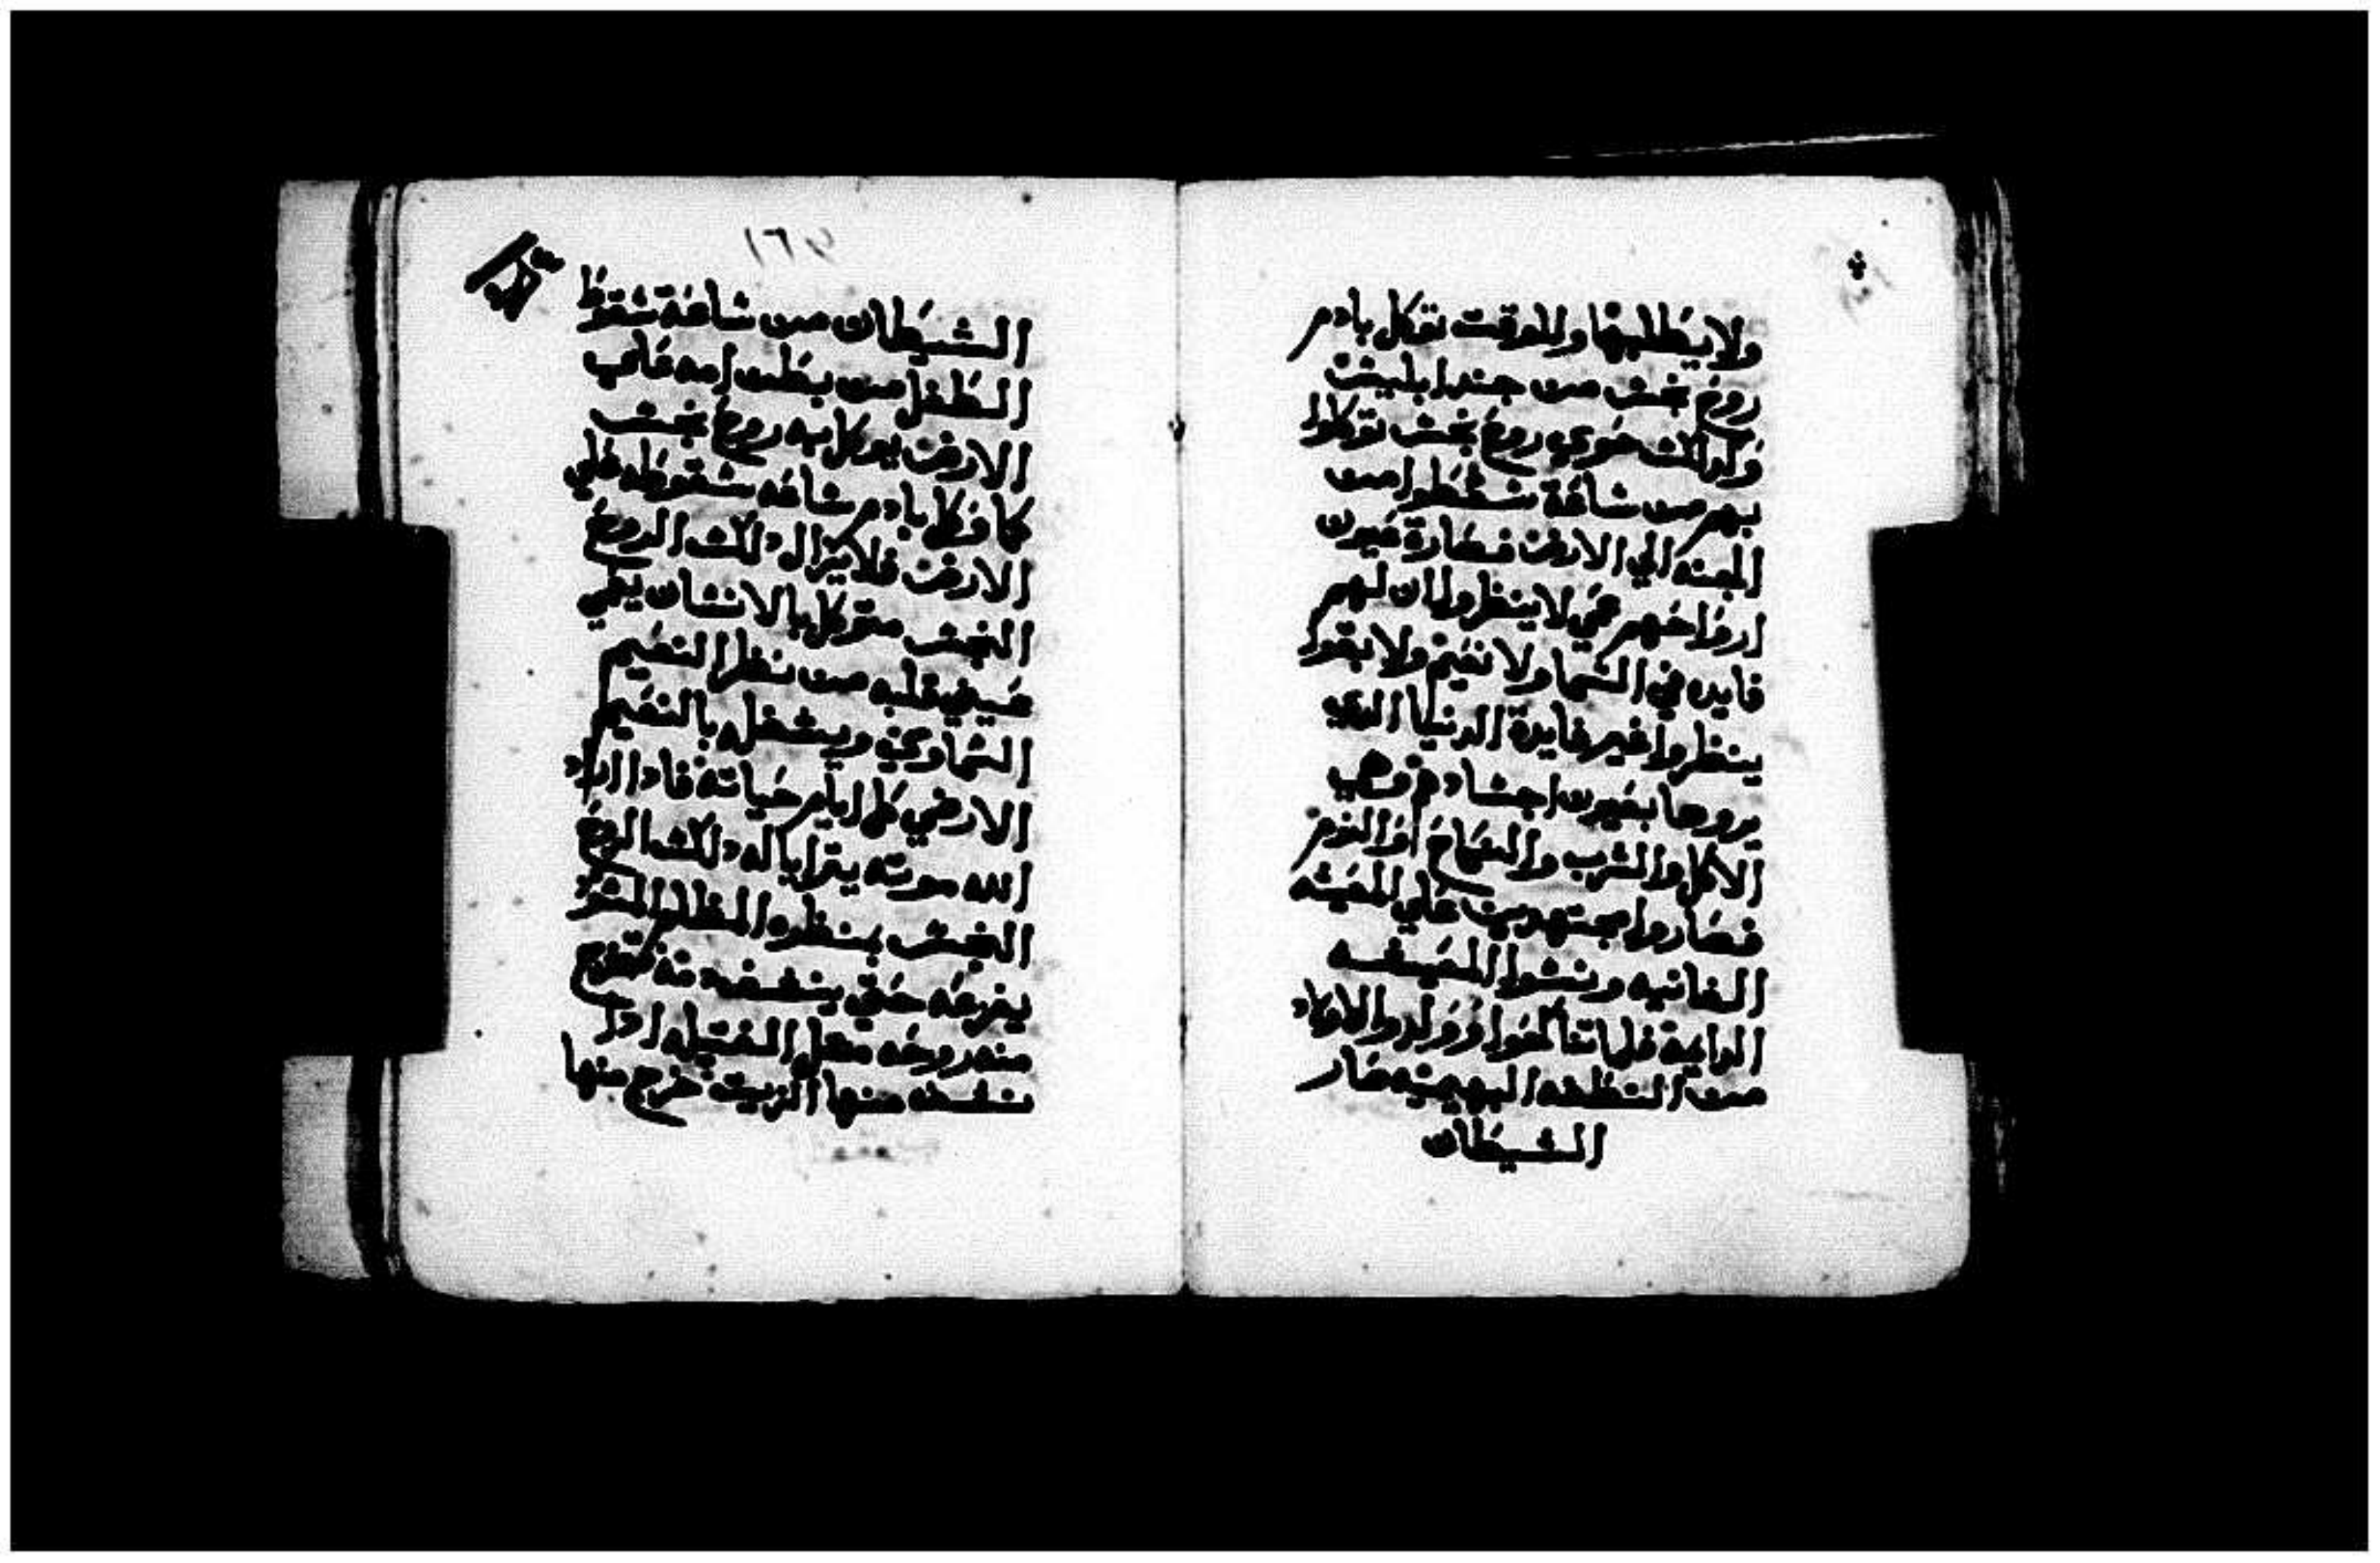 ولا يطلبها وللوقت توكل بادم
روح نجس من جند ابليس
وكدلك حوي روح نجس توكلوا
بهم من ساعة سقطوا من
الجنه الي الارض فصارة عيون
ارواحهم عمي لا ينظروا ان لهم
فايده في السما ولا نعيم ولا بقوا
ينظروا غير فايدة الدنيا الدي
يروها بعيون اجسادهم وهي
الاكل والشرب والنكاح والنوم
فصاروا مجتهدين علي المعيشه
الفانيه ونسوا المعيشه
الدايمة فلما تناكحوا وولدوا الاولاد
من النطفه البهيميه صار
الشيطان
١٦٧
الشيطان من ساعة سقوط
الطفل من بطن امه علي
الارض يوكل به روح نجس
كما وكل بادم ساعه سقوطه علي
الارض فلا يزال دلك الروح
النجس متوكل بالانسان يعمي
عيني قلبه من نظر النعيم
السماوي ويشغله بالنعيم
الارضي كل ايام حياته فادا اراد
الله موته يترايا له دلك الروح
النجس بمنظره المظلم
يفزعه حتي ينشف دمه فتخرج
منه روحه مثل الفتيله ادا
نشف منها الزيت خرج منها